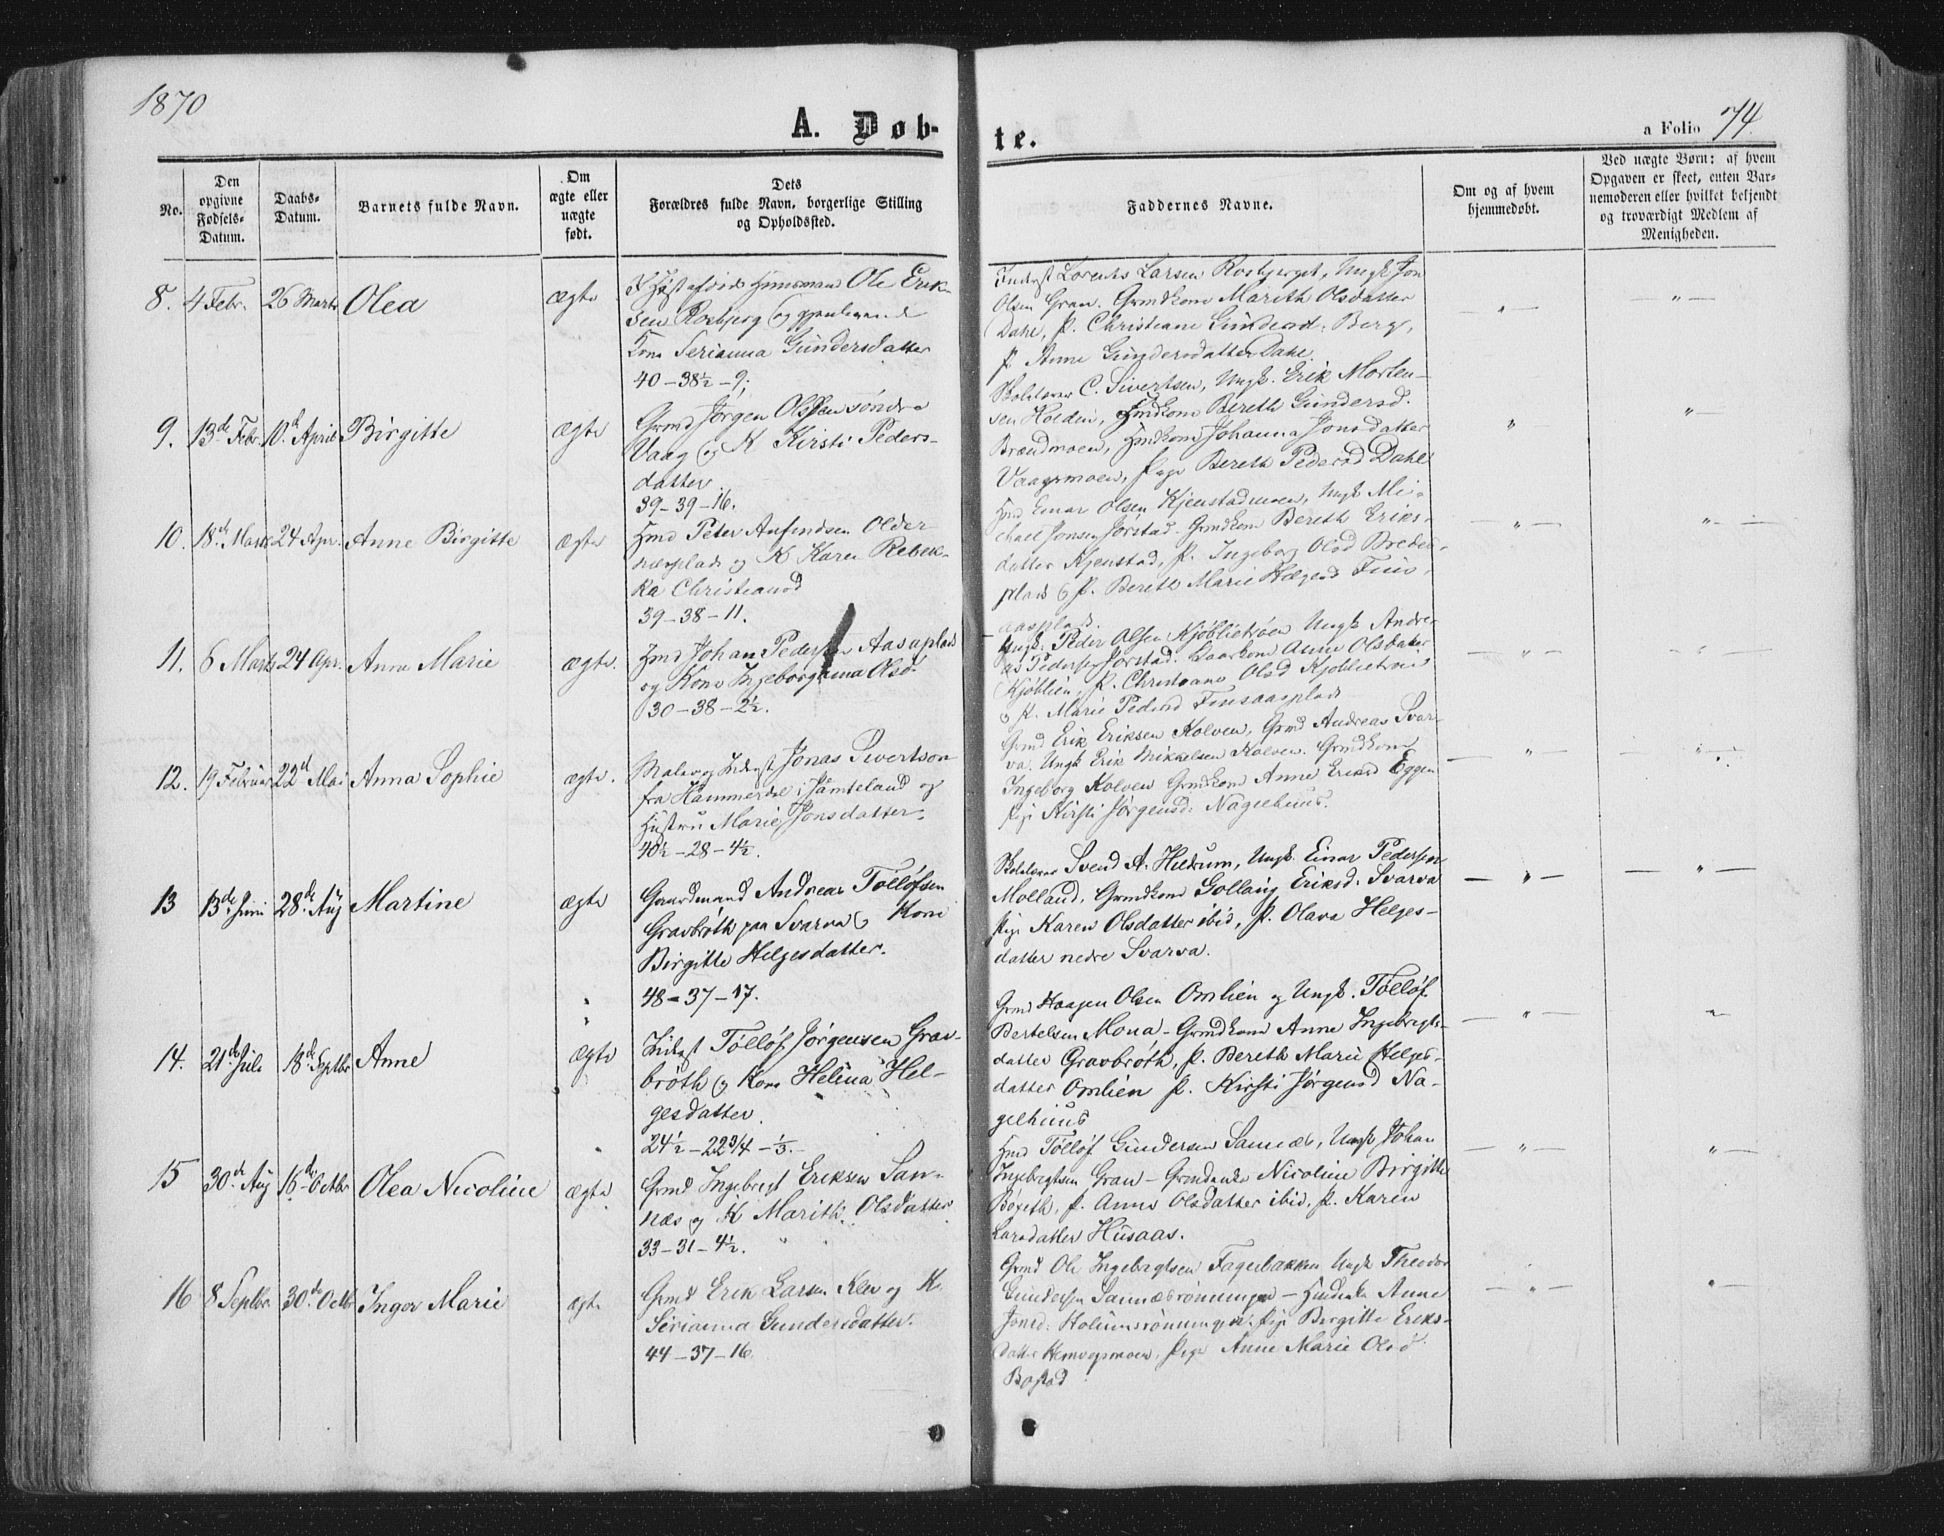 1870
A. Døb-
te.
a Folio 74.
No.
Den
opgivne
Fødsels-
Datum.
Daabs-
Datum.
Barnets fulde Navn.
Om
ægte eller
uægte
født.
Dets
Forældres fulde Navn, borgerlige Stilling
og Opholdssted.
Faddernes Navne.
Om og af hvem
hjemmedøbt.
Ved uægte Børn: af hvem
Opgaven er skeet, enten Bar-
nemoderen eller hvilket bekjendt
og troværdigt Medlem af
Menigheden.
8. 4 Febr. 26 Marts Olea ægte
Huusmand Ole Erik-
sen Rosbjerg og
Kone Serianna Gundersdatter
40-38½-9;
Inderst Lorents Larsen Rosbjerget, Ungk Jon
Olsen Gran. Grmdkone Marith Olsdatter
Dahl, P. Christiane Gundersd: Berg,
P. Anne Gundersdatter Dahl.
9. 13de Febr. 10d April Birgitte ægte
Grmd Jørgen Olssen søndre
Vaag og K Kirsti Peders-
datter
39-39-16.
Skolelærer C. Sivertsen, Ungk. Erik Morten-
sen Holden, Hmdkone Bereth Gundersd.
Brændmoen, Hmdkone Johanna Jonsdatter
Vaagsmoen, Pige Bereth Pedersd Dahl
10. 18de Marts 24 Apr. Anne Birgitte ægte
Hmd Peter Anfindsen Older-
næsplads og K Karen Rebek-
ka Christiansd
39-38-11.
Hmd Einar Olsen Kjenstadmoen, Ungk Mi-
chael Jonsen Jørstad. Grmdkone Bereth Eriks-
datter Kjenstad, P. Ingeborg Olsd Breder-
plads & P. Bereth Marie Hægesd Fins-
aasplads.
11. 6 Marts 24 Apr. Anne Marie ægte.
Hmd Johan Pedersen Aasaplads
og Kone Ingeborganna Olsd.
30-38-2½.
Ungk. Peder Olsen Kjøblietrøen Ungk Andre-
as Pedersen Jørstad. Kaarkone Anne Olsdatter
Kjøblien, P. Christiane Olsd Kjøblietrøen
& P. Marie Pedersd Finsaasplads
12. 19 Februar 22d Mai Anna Sophie ægte.
Maler og Inderst Jonas Sivertson
fra Hammerdal i Jämteland og
Hustru Marie Jonsdatter.
40½-28-4½.
Grmd Erik Eriksen Kolven, Grmd Andreas Svar-
va. Ungk Erik Mikkelsen Kolven. Grmdkone
Ingeborg Kolven Grmdkone Anne Eriksd Eggen
Pige Kirsti Jørgensd: Nagelhuus.
13 13de Juni 28de Aug Martine ægte
Gaardmand Andreas Tøllöfsen
Gravbröth paa Svarva og Kone
Birgitte Helgesdatter.
48-37-17.
Skolelærer Svend A. Heldrum, Ungk. Einar Pedersen
Molland, Grmdkone Gollaug Eriksd. Svarva
Pige Karen Olsdatter ibid, P. Olava Helges-
datter nedre Svarva.
14. 21de Juli 18de Septbr Anne ægte
Inderst Tøllöf Jørgensen Grav-
bröth og Kone Helena Hel-
gesdatter.
24½-22¾-⅓.
Grmd Haagen Olsen Omlien og Ungk. Tøllöf
Bertelsen Mona - Grmdkone Anne Ingebrigts-
datter Gravbröth, P. Bereth Marie Helges-
datter Omlien P. Kirsti Jørgensd Na-
gelhuus
15 30de Aug 16de Octbr Olea Nicoline ægte.
Grmd Ingebrigt Eriksen San-
næs og K Marith Olsdatter
33-31-4½.
Hmd Tøllöf Gundersen Sannæs, Ungk Johan
Ingebrigtsen Gran - Grmdenke Nicoline Birgitte
P. Anne Olsdatter ibid, P. Karen
Larsdatter Husaas.
16 8 Septbr. 30de Octbr Inger Marie ægte
Grmd Erik Larsen Klev og K.
Serianna Gundersdatter.
44-37-16.
Grmd Ole Ingebrigtsen Fagerbakken Ungk Theodor
Gundersen Sannæsrønningen - Hmdenke Anne
Jonsd. Holumsrønningen. Pige Birgitte Eriks-
datter Pige Anne Marie Olsd
Bøstad